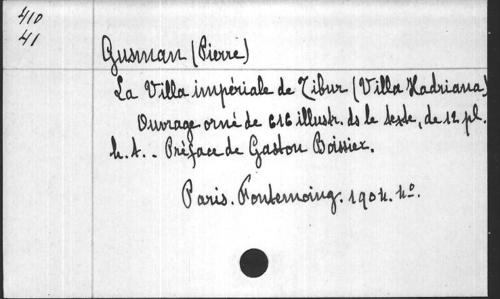 410
41
Gusman (Pierre)
La Villa impériale de Tibur (Villa Hadriana)
Ouvrage orné de 616 illustr. ds le texte, de 12 pl.
h. t. - Préface de Gaston Boissier.
Paris. Fontemoing. 1904. 4°.